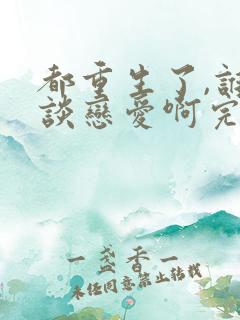 都重生了,誰
談戀愛啊完
一盞香一
未經同意禁止轉載